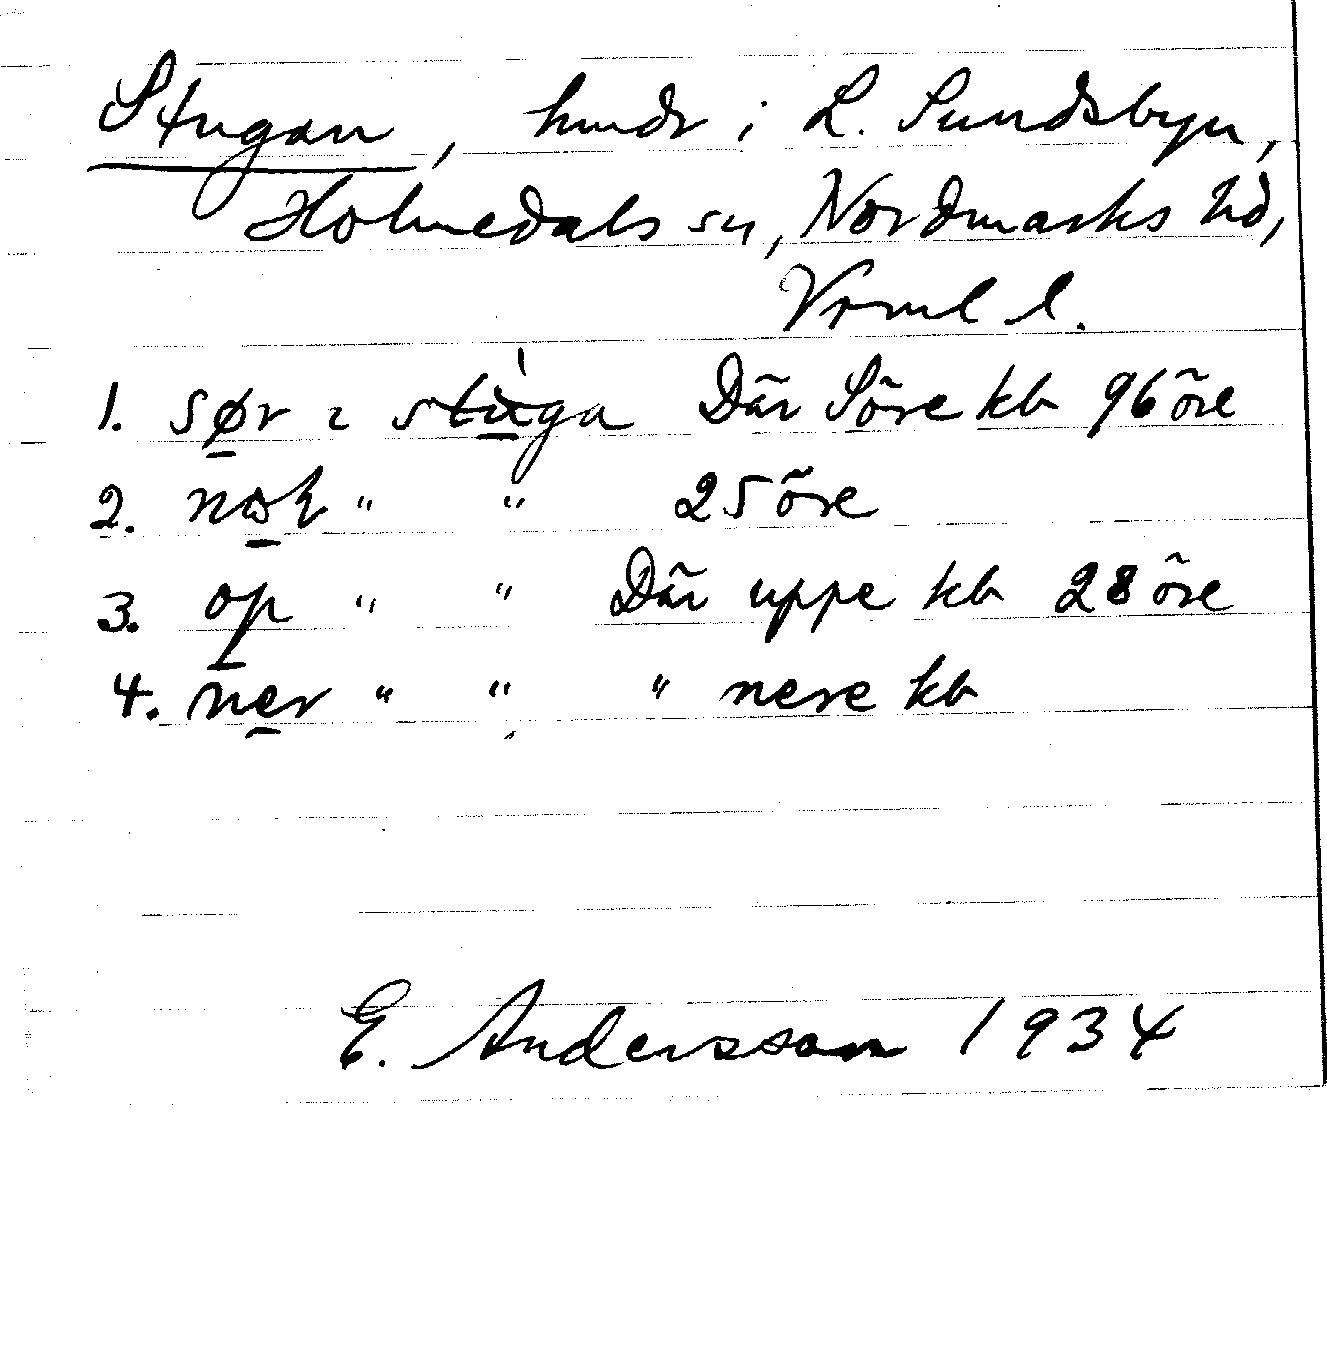 Stugan, hmdr i L. Sundsbyn,
Holmedals sn, Nordmarks hd,
Vrml l.
1. sør ɩ stùga Där Söre kb 96 öre
2. " " 25 öre
3. op " " Där uppe kb 28 öre
4. ner " " " nere kb
E. Andersson 1934